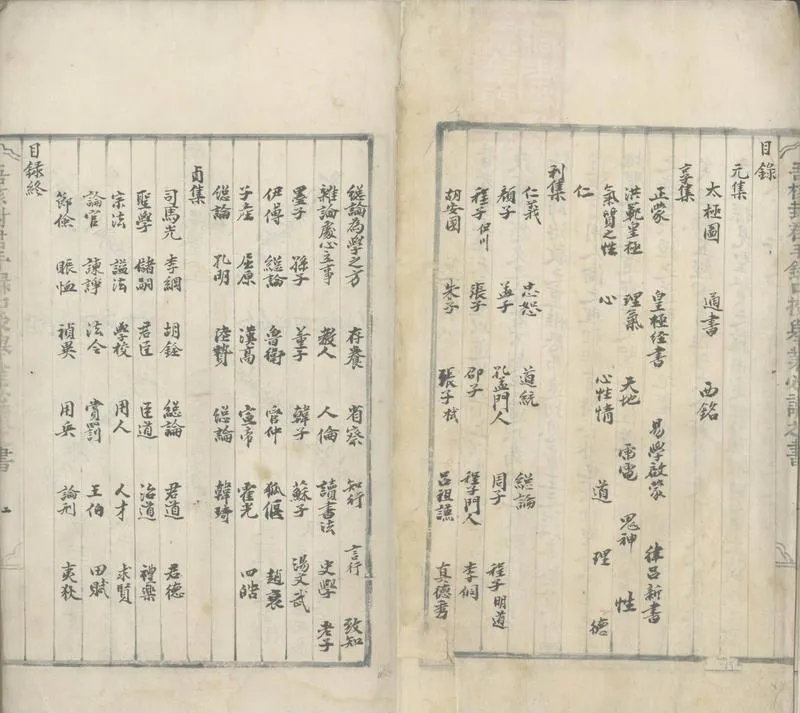 目録
元集
太極圖 通書 西銘
亨集
正蒙 皇極經書 易學啟蒙 律呂新書
洪範皇極 理氣 天地 雷電 鬼神 性
氣質之性 心 心性情 道 理 德
仁
利集
仁義 忠恕 道統 総論
顔子 孟子 孔孟門人 周子 程子明道
程子伊川 張子 邵子 程子門人 李侗
胡安国 朱子 張子栻 呂祖謙 真德秀
総論為學之方 存養 省察 知行 言行 致知
雜論處心立事 教人 人倫 讀書法 史學 老子
墨子 孫子 董子 韓子 蘇子 湯文武
伊傅 総論 魯衛 管仲 狐偃 趙衰
子產 屈原 漢高 宣帝 霍光 四皓
総論 孔明 陸贄 総論 韓琦
貞集
司馬光 李綱 胡銓 総論 君道 君德
聖學 儲嗣 君臣 臣道 治道 禮樂
宗法 諡法 學校 用人 人才 求賢
論官 諫諍 法令 賞罰 王伯 田賦
節儉 賑恤 禎異 用兵 論刑 夷狄
目録終